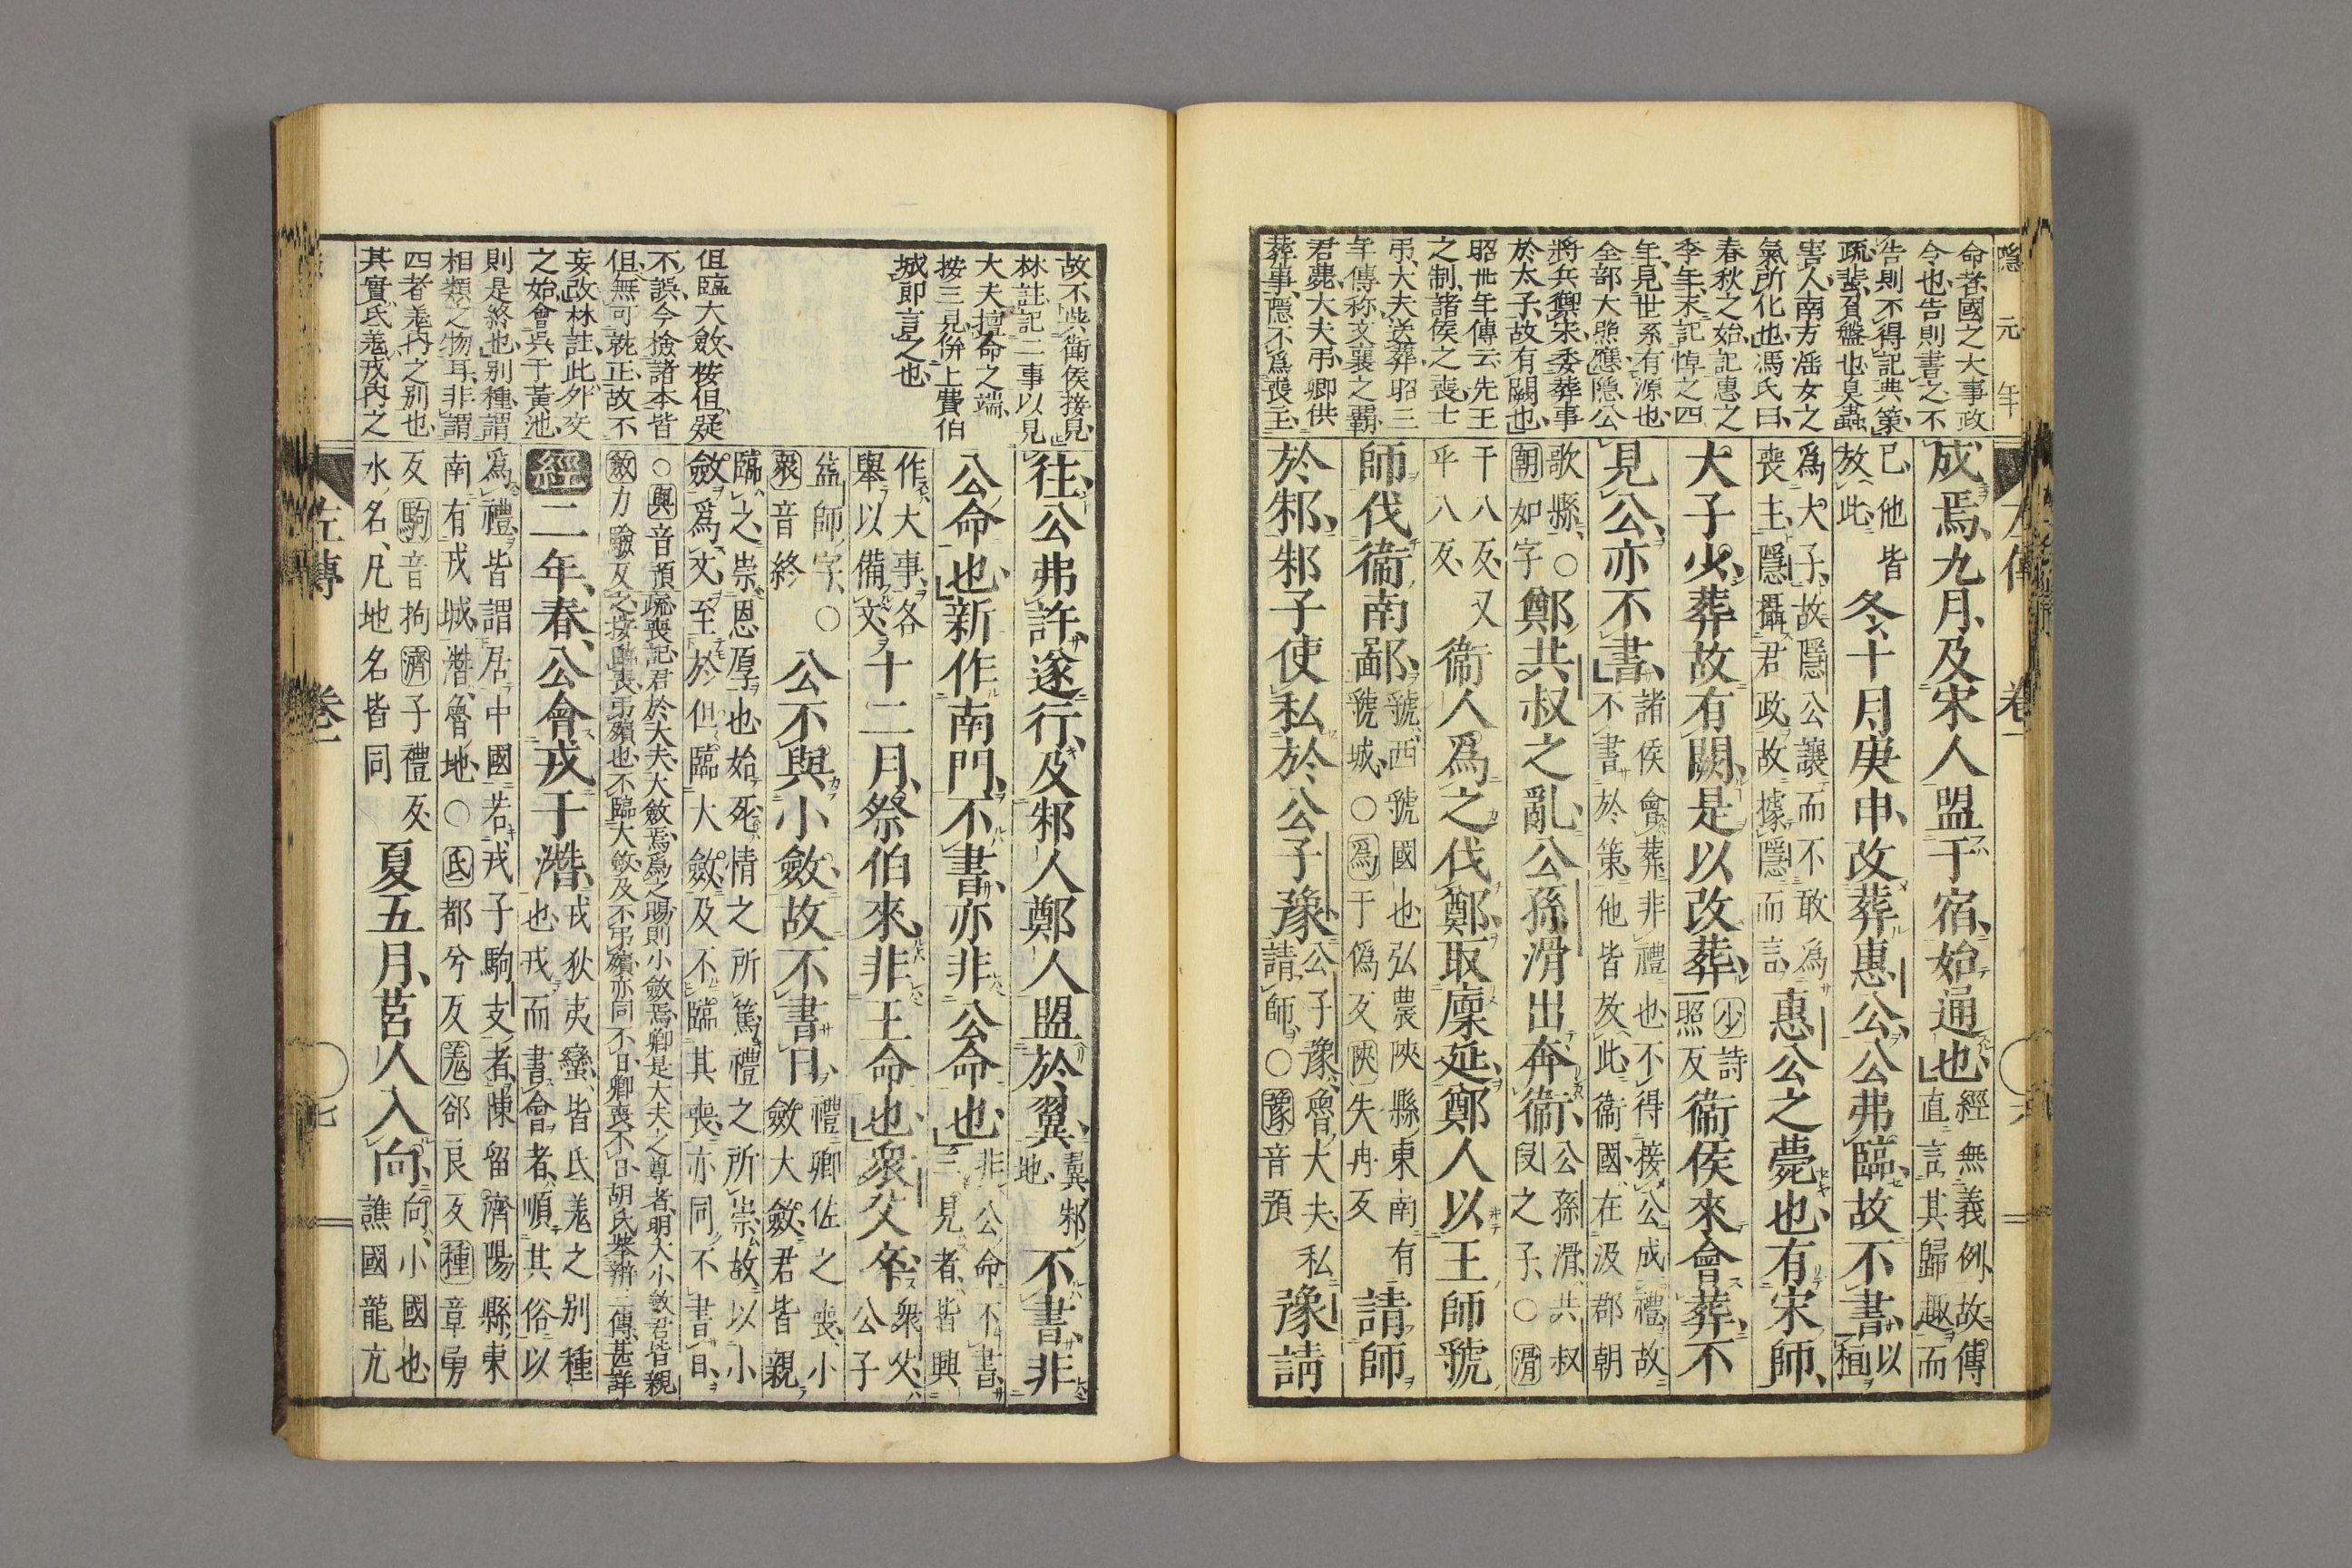 隱元年
命者國之大事政
令也告則書之不
告則不得記典策
疏蜚負盤也臭蟲
害人南方淫女之
氣所化也馮氏曰
春秋之始記惠之
季年末記悼之四
年見世系有源也
全部大照應隱公
將兵禦宋委葬事
於太子故有闕也
昭卅年傳云先王
之制諸侯之喪士
弔大夫送葬昭三
年傳称文襄之霸
君薨大夫弔卿供
葬事隱不爲喪主
成焉九月及宋人盟于宿始通也經無義例故傳直言其歸趣而
已他皆放此冬十月庚申改葬惠公公弗臨故不書以桓
爲大子故隱公讓而不敢爲喪主隱攝君政故據隱而言惠公之薨也有宋師
大子少葬故有闕是以改葬少詩照反衞侯來會葬不
見公亦不書諸侯會葬非禮也不得接公成禮故不書於策他皆放此衞國在汲郡朝
歌縣○朝如字鄭共叔之亂公孫滑出奔衞公孫滑共叔段之子○滑
于八反又乎八反衞人爲之伐鄭取廩延鄭人以王師虢
師伐衞南鄙虢西虢國也弘農陝縣東南有虢城○爲于僞反陝失冉反請師
於邾邾子使私於公子豫公子豫魯大夫私請師○豫音預豫請
左傳 卷一 六
故不些衞侯接見
林註記二事以見
大夫擅命之端
按三見併上費伯
城即言之也
但臨大斂桉但疑
不誤今撿諸本皆
但無可就正故不
妄改林註此外交
之始會吳于黃池
則是終也別種謂
相類之物耳非謂
四者羗内之別也
其實氐羗戎内之
往公弗許遂行及邾人鄭人盟於翼翼邾地不書非
公命也新作南門不書亦非公命也非公命不書三見者皆興
作大事各舉以備文十二月祭伯來非王命也衆父卒衆父公子
益師字○衆音終公不與小斂故不書日禮卿佐之喪小斂大斂君皆親
臨之崇恩厚也始死情之所篤禮之所崇故以小斂爲文至於但臨大斂及不臨其喪亦同不書日
○與音預疏喪記君於大夫大斂焉爲之賜則小斂焉卿是大夫之尊者明大小斂君皆親斂力驗反之按臨喪弔殯也不臨大斂及不弔殯亦同不日卿喪不日胡氏萃辨二傳甚詳
經二年春公會戎于潛戎狄夷蠻皆氐羗之別種也戎而書會者順其俗以
爲禮皆謂居中國若戎子駒支者陳留濟陽縣東南有戎城潛魯地○氐都兮反羗郤良反種章勇
反駒音拘濟子禮反水名凡地名皆同夏五月莒人入向向小國也譙國龍亢
左傳 卷一 七